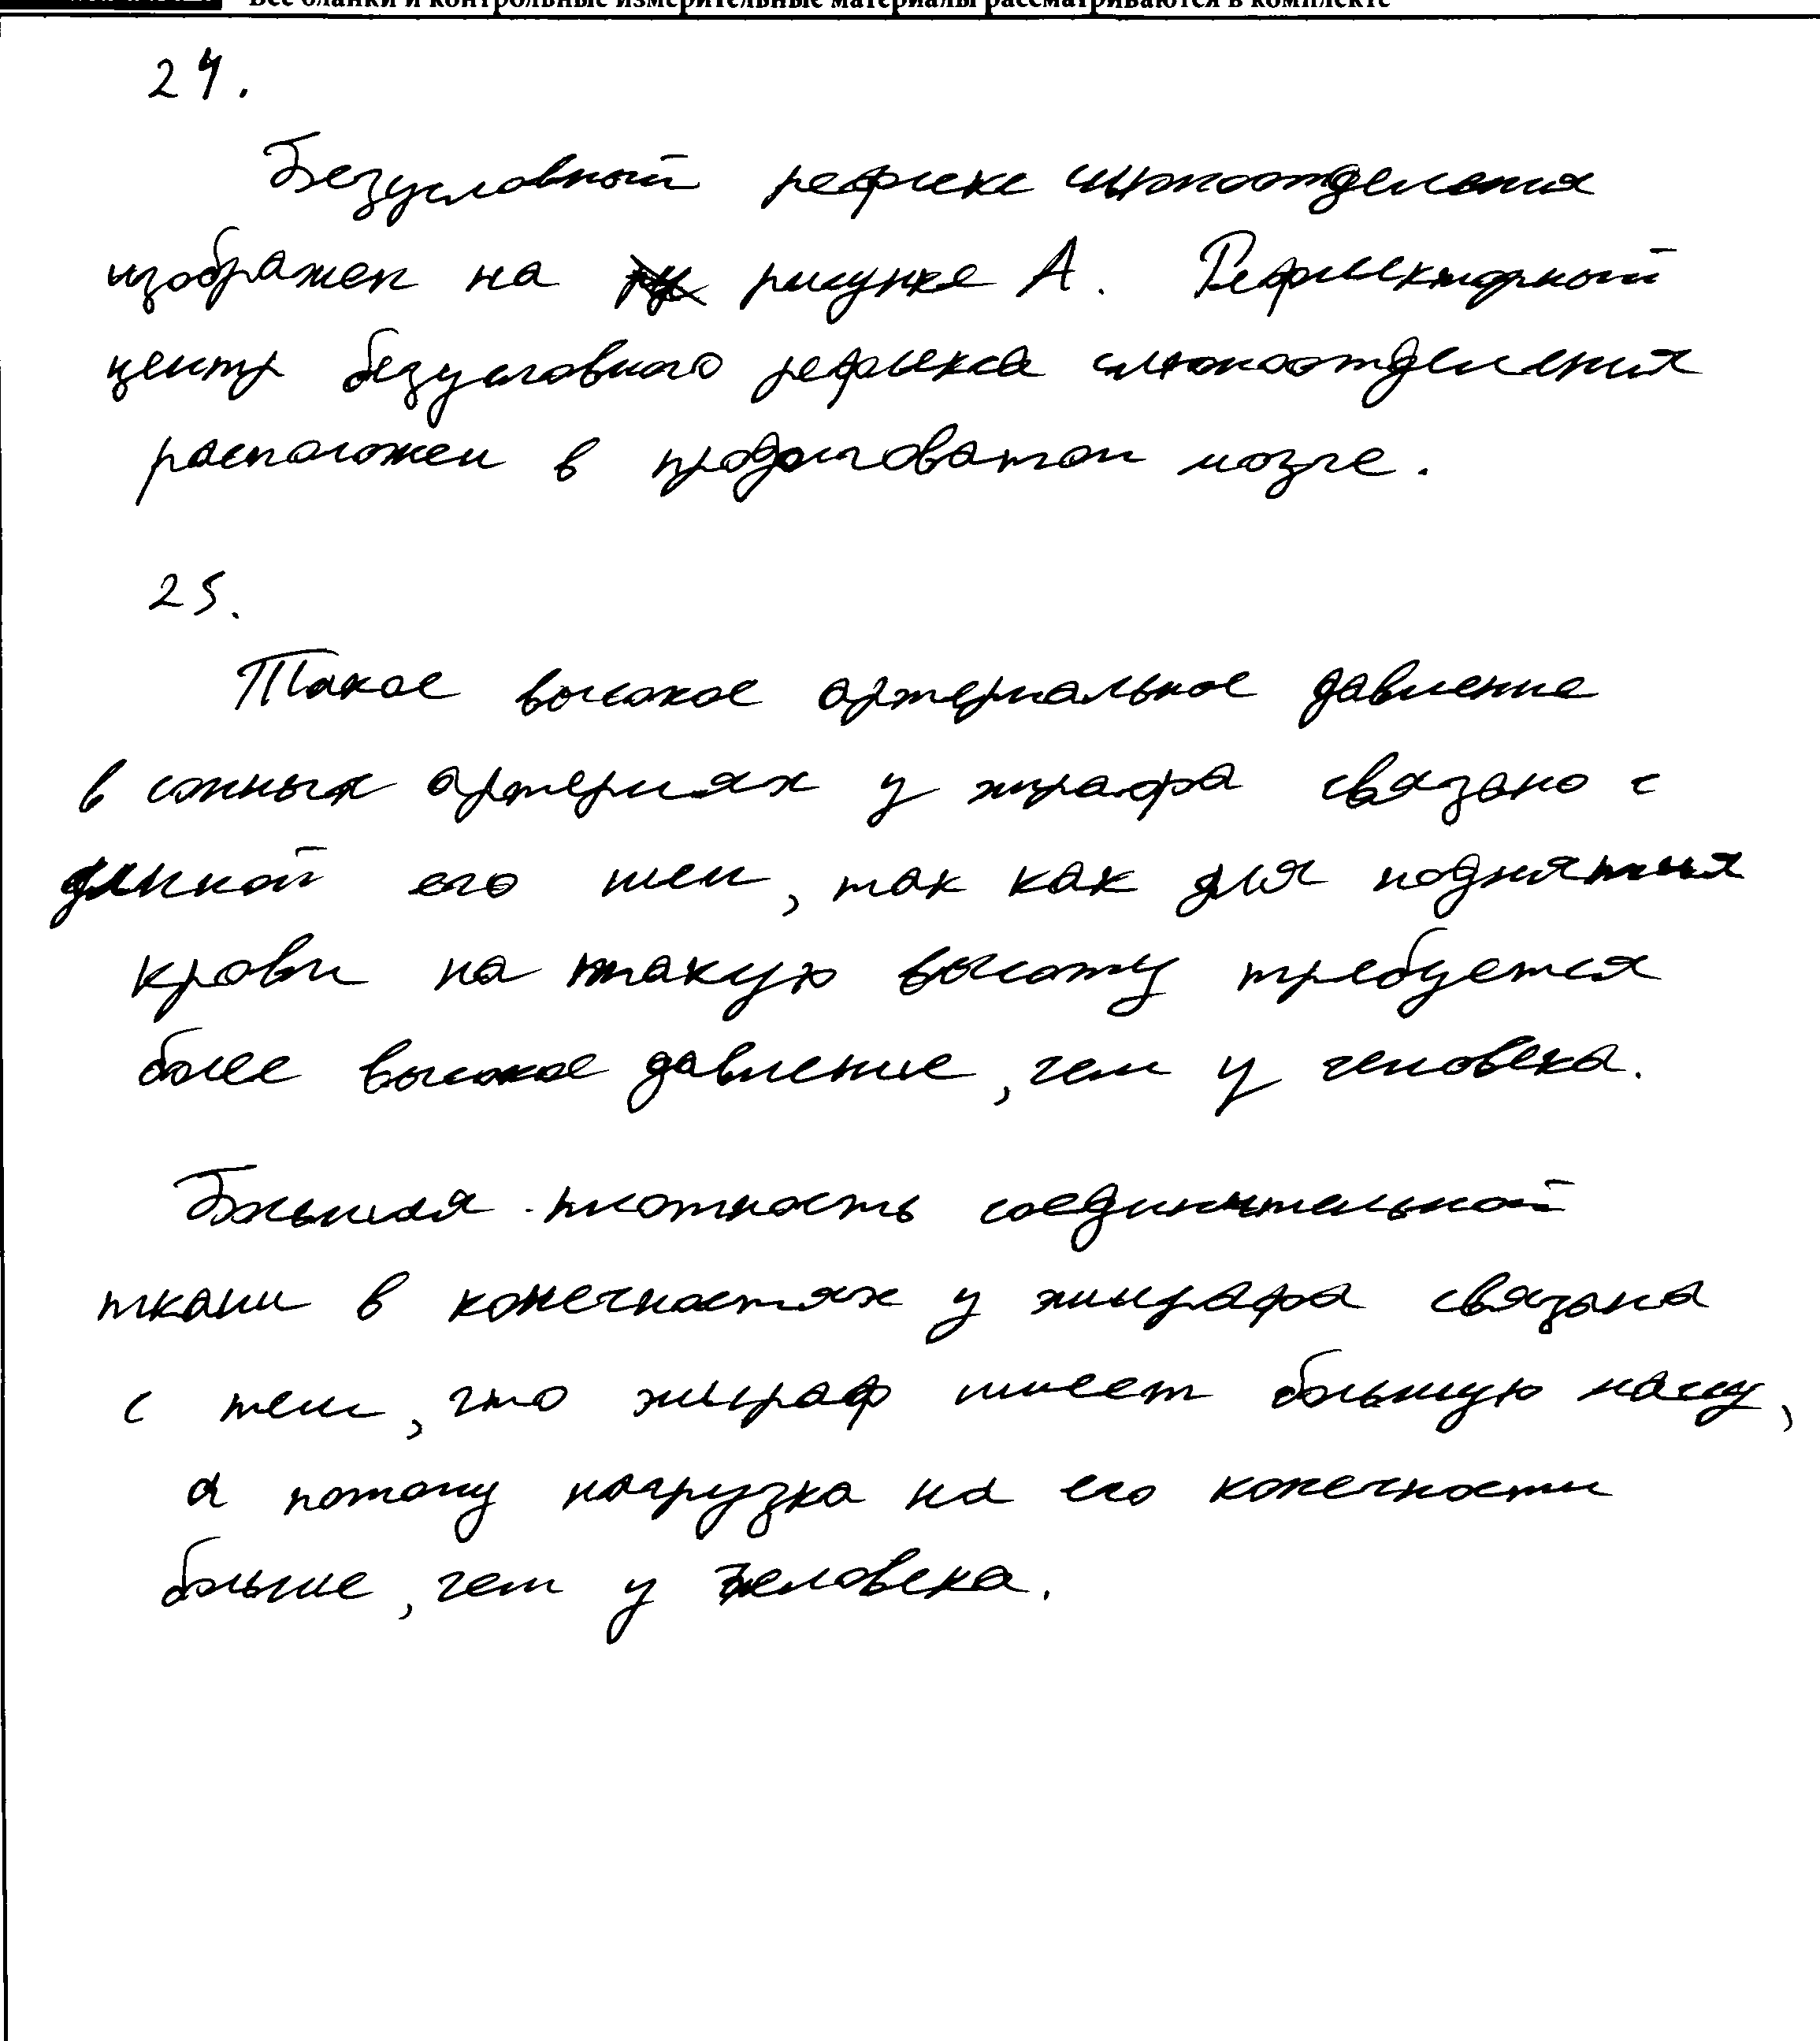 Все бланки и контрольные измерительные материалы рассматриваются в комплекте
24.
Безусловный рефлекс слюноотделения
изображен на рисунке А. Рефлекторный
центр безусловного рефлекса слюноотделения
расположен в продолговатом мозге.
25.
Такое высокое артериальное давление
в сонных артериях у жирафа связано с
длиной его шеи, так как для поднятия
крови на такую высоту требуется
более высокое давление, чем у человека.
Большая плотность соединительной
ткани в конечностях у жирафа связана
с тем, что жираф имеет большую массу,
а потому нагрузка на его конечности
больше, чем у человека.